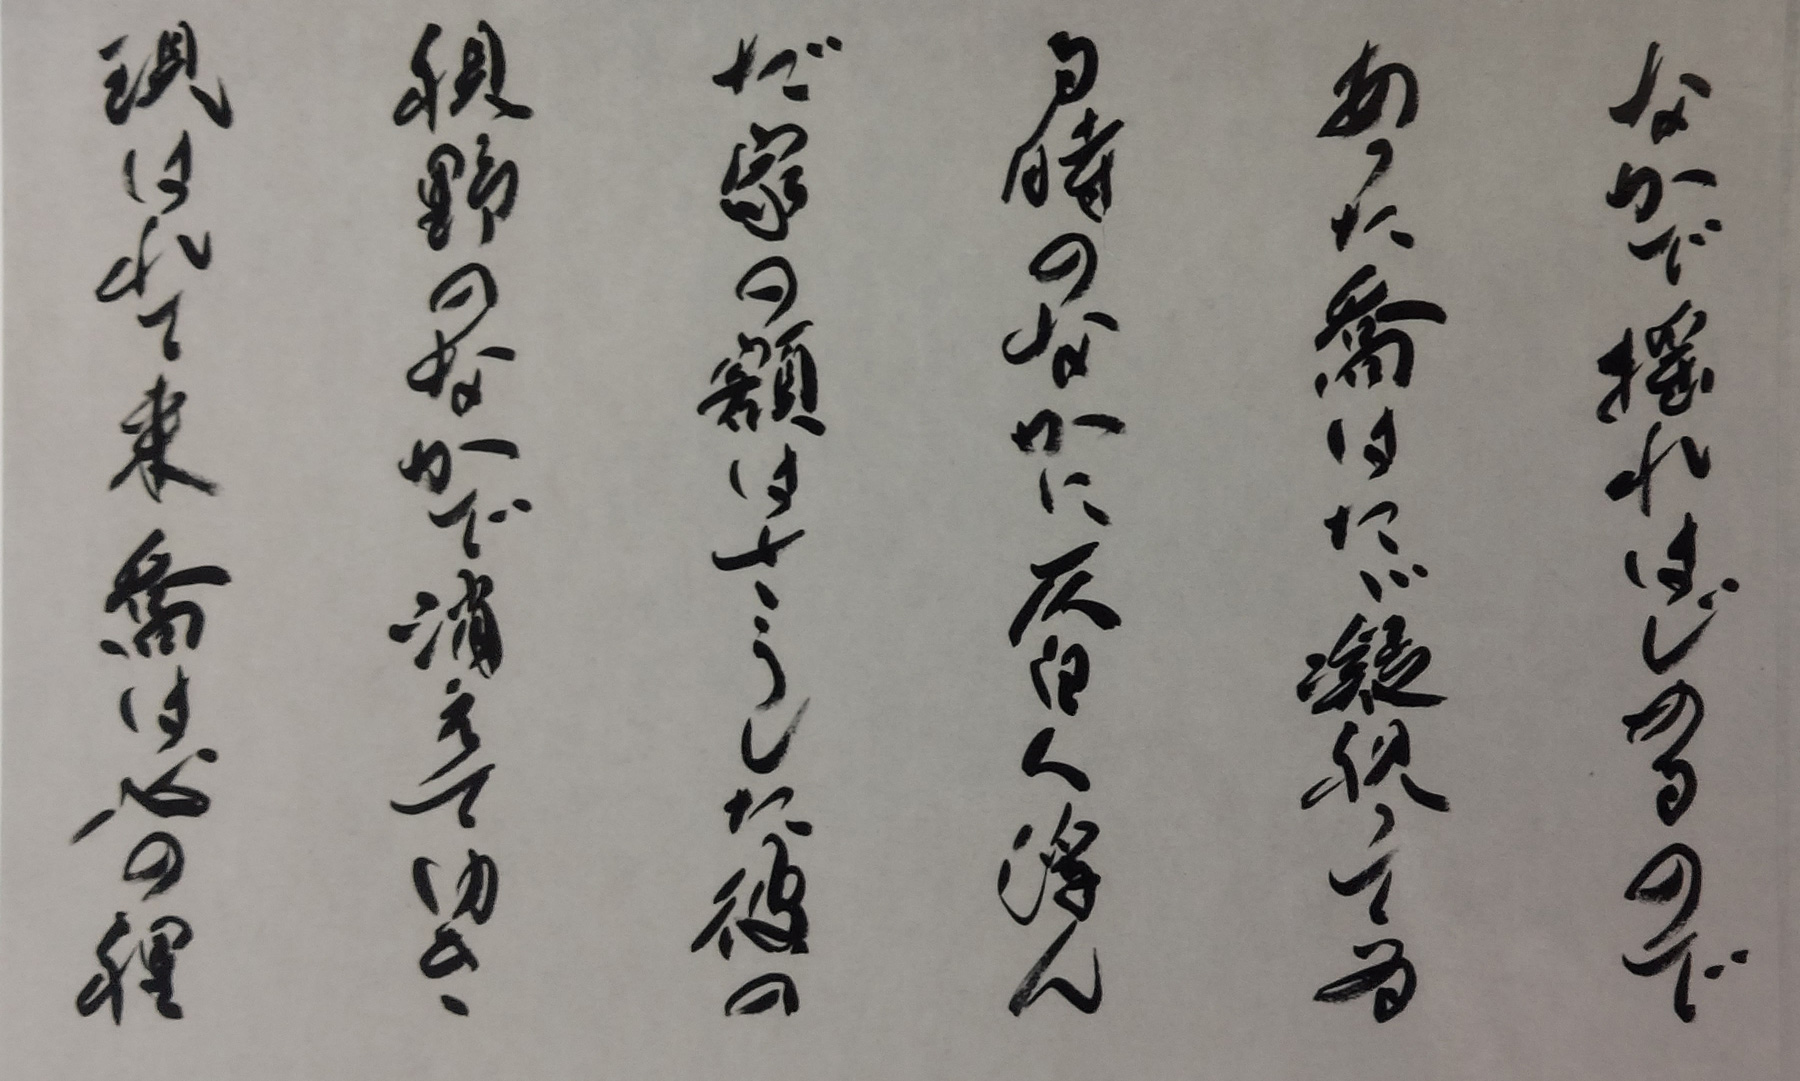 なかで揺れはじめるので
あった喬はたゞ凝視ってゐ
る時のなかに灰白く浮ん
だ家の額はさうした彼の
視野のなかで消えてゆき、
現はれて来喬は心の裡